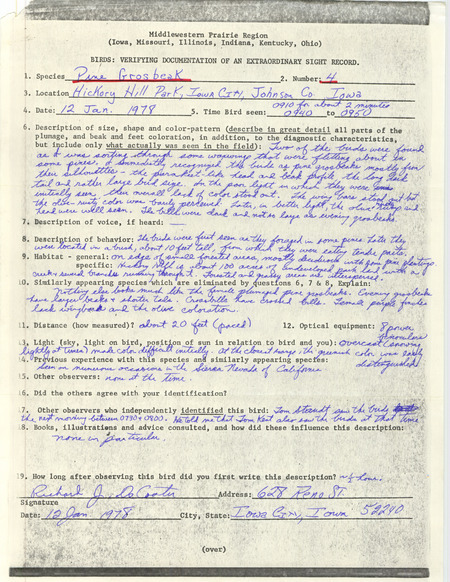 Middlewestern Prairie Region
(Iowa, Missouri, Illinois, Indiana, Kentucky, Ohio)
BIRDS: VERIFYING DOCUMENTATION OF AN EXTRAORDINARY SIGHT RECORD.
1. Species Pine Grosbeak 2. Number: 4
3. Location Hickory Hill Park, Iowa City, Johnson Co. Iowa
0910 for about 2 minutes
4. Date: 12 Jan. 1978 5. Time Bird seen: 0940 to 0950
6. Description of size, shape and color-pattern (describe in great detail all parts of the
plumage, and beak and feet coloration, in addition, to the diagnostic characteristics,
but include only what actually was seen in the field): Two of the birds were found
as I was sorting through some waxwings that were flitting about in
some pines. I immediately recognized the birds as pine grosbeaks mostly from
their silhouettes - the parakeet-like head and beak profile, the long
tail and rather large bird size. In the poor light in which they were
initially seen their overall lack of color stood out. The wing bars stood out but
the olive-rusty color was barely perceived. Later, in better light the olive
head were well seen. The bill were dark and not as large as evening grosbeaks.
7. Description of voice, if heard: —
8. Description of behavior: The birds were first seen as they foraged in some pines. Later they
were located in a bush, about 10 feet tall, from which they were eating
9. Habitat - general: on edge of small forested area, mostly deciduous with some pine plantings
specific: Hickory Hill is about 100 acres of undeveloped park land with a
creek several branches running through it. Forested and grassy areas are interspersed.
10. Similarly appearing species which are eliminated by questions 6, 7 & 8, Explain:
Nothing else looks much like the female plumaged pine grosbeaks. Evening grosbeaks
have larger beaks & shorter tails. Crossbills have crossed bills. Female purple finches
lack wingbars and the olive coloration.
11. Distance (how measured)? about 20 feet (paced) 12. Optical equipment: 8 power
binoculars
13. Light (sky, light on bird, position of sun in relation to bird and you): overcast (snowing
lightly at times) made color difficult initially. At the closest range the overall color was easily
distinguished
14. Previous experience with this species and similarly appearing species:
seen on numerous occasions in the Sierra Nevada of California
15. Other observers: none at the time.
16. Did the others agree with your identification?
7. Other observers who independently identified this bird: Tom Staudt saw the birds
the next morning between 0730 & 0800. He told me that Tom Kent also saw the birds at that time
8. Books, illustrations and advice consulted, and how did these influence this description:
none in particular
19. How long after observing this bird did you first write this description? ½ hour.
Richard J. DeCoster Address: 628 Reno St.
Signature
Date: 12 Jan 1978 City, State: Iowa City, Iowa 52240
(over)